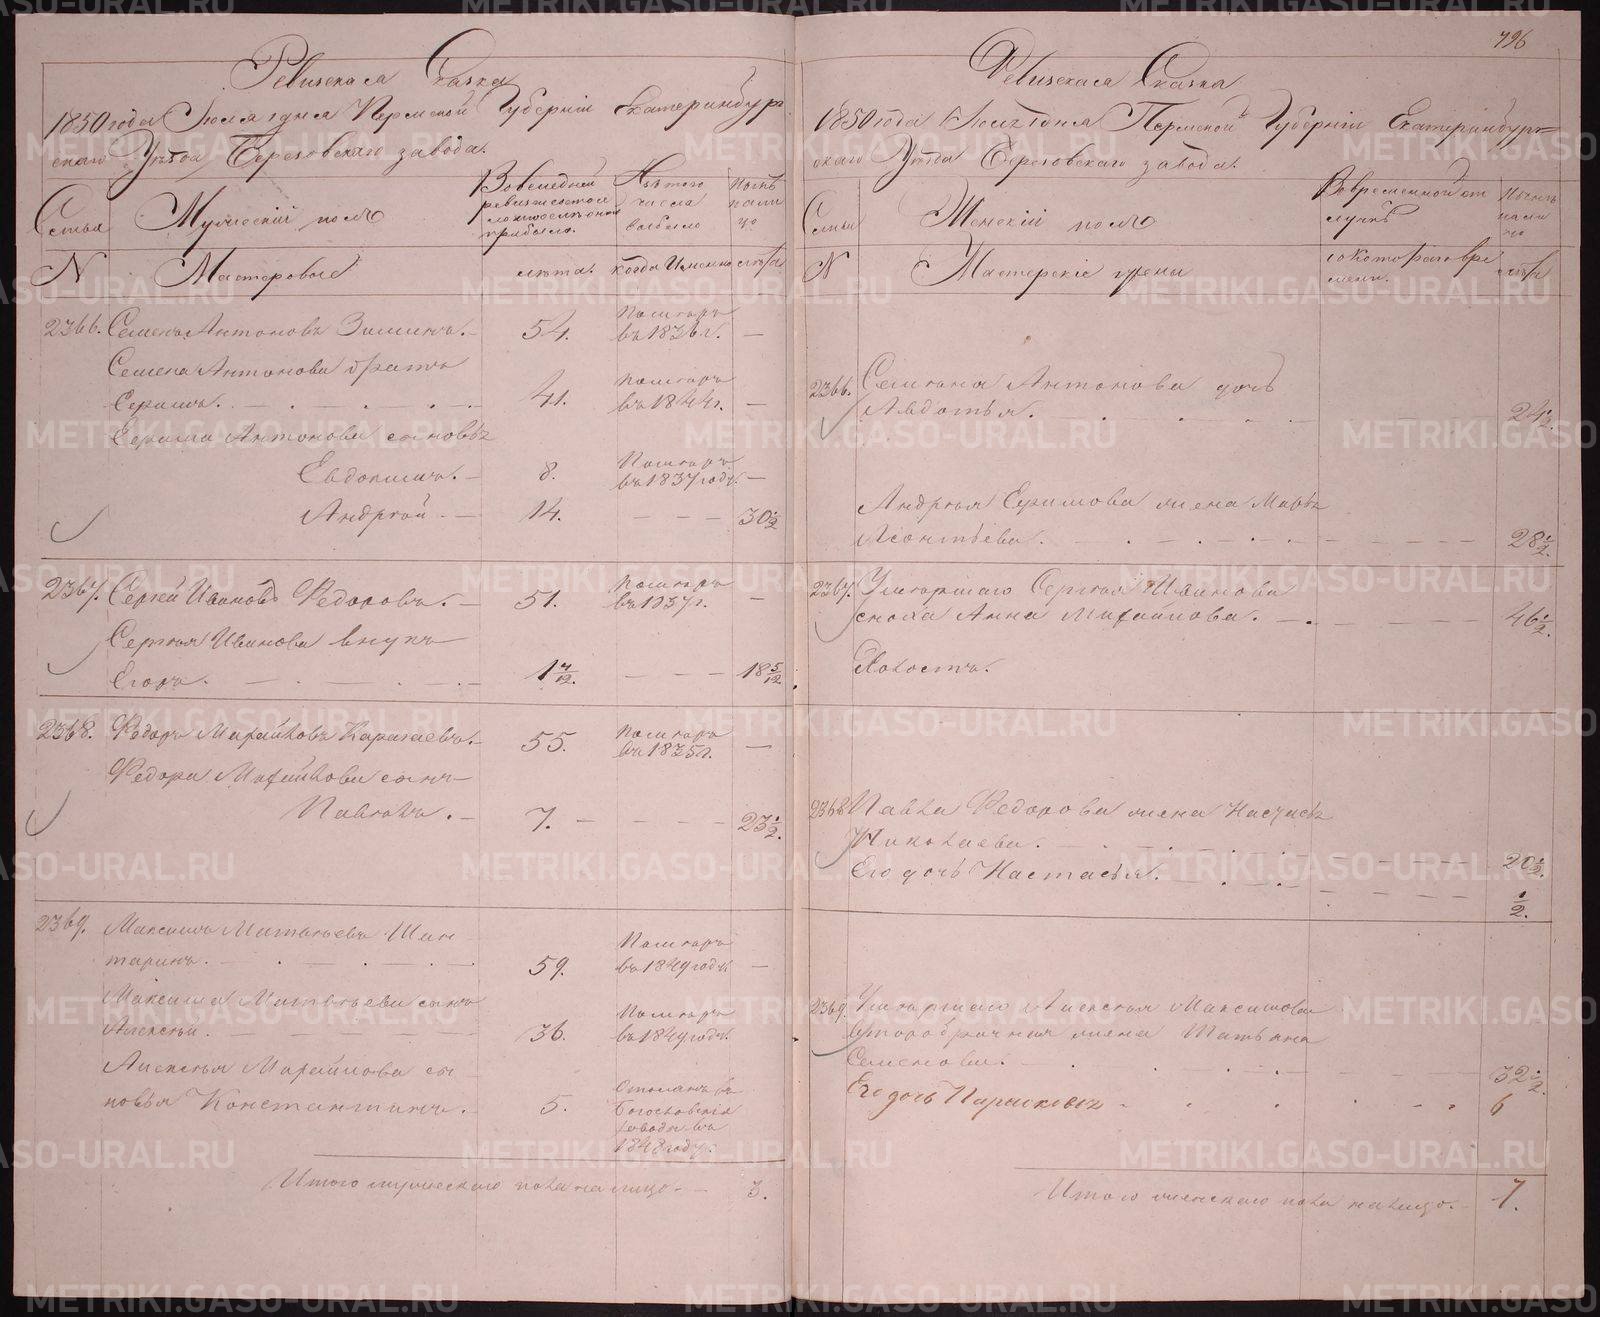 796
Ревизская Сказка
1850 года Июля 1 дня Пермской Губернiи Екатеринбург
скаго Уѣзда Березовскаго завода.
Семьи
Мужескiй полъ
Въ последней
ревизiи состоя
ло и после оной
прибыло.
Изъ того
числа
выбыло
Ныне
на ли
цо
N
Мастеровые
лѣта.
когда Именно
лѣта
2366. Семенъ Антоновъ Зиминъ. 54. Померъ
въ 1836 г. —
Семена Антонова братъ
Ефимъ. 41. Померъ
въ 1844 г. —
Ефима Антонова сыновья
Евдокимъ. — 8. Померъ
въ 1837 году. —
Андрей. — 14. — — — 30 1/2
2367. Сергей Ивановъ Федоровъ. — 51. Померъ
въ 1837 г. —
Сергея Иванова внукъ
Егоръ. 1 4/12. — — — 18 5/12.
2368. Федоръ Михайловъ Карагаевъ. 55. Померъ
въ 1835 г. —
Федора Михайлова сынъ
Павелъ. — 7. — — — — 23 1/2.
2369. Максимъ Матвеевъ Шан-
таринъ. 59. Померъ
въ 1849 году. —
Максима Матвеева сынъ
Алексей. 36. Померъ
въ 1849 году.
Алексея Михайлова сы-
новья Константинъ. — 5. Отосланъ въ
Богословскiя
заводы въ
1848 году.
Итого мужескаго пола налицо — 3.
Ревизская Сказка
1850 года Июля 1 дня Пермской Губернiи Екатеринбург
скаго Уѣзда Березовскаго завода.
Семьи
Женскiй полъ
Во временной от
лучкѣ
Ныне
на ли
цо
N
Мастерскiе жены
съ котораго вре
мени.
лѣта
2366. Семена Антонова дочь
Авдотья. 24 1/2.
Андрея Ефимова жена Марья
Леонтьева. 28 1/2.
2367. Умершаго Сергея Иванова
сноха Анна Михайлова. 46 1/2.
Холостъ.
2368. Павла Федорова жена Настасья
Николаева. 20 1/2.
Его дочь Настасья. 1/2.
2369. Умершаго Алексея Максимова
второбрачная жена Татьяна
Семенова. 32 1/2.
Его дочь Парасковья 6
Итого женскаго пола налицо. 7.
METRIKI.GASO-URAL.RU